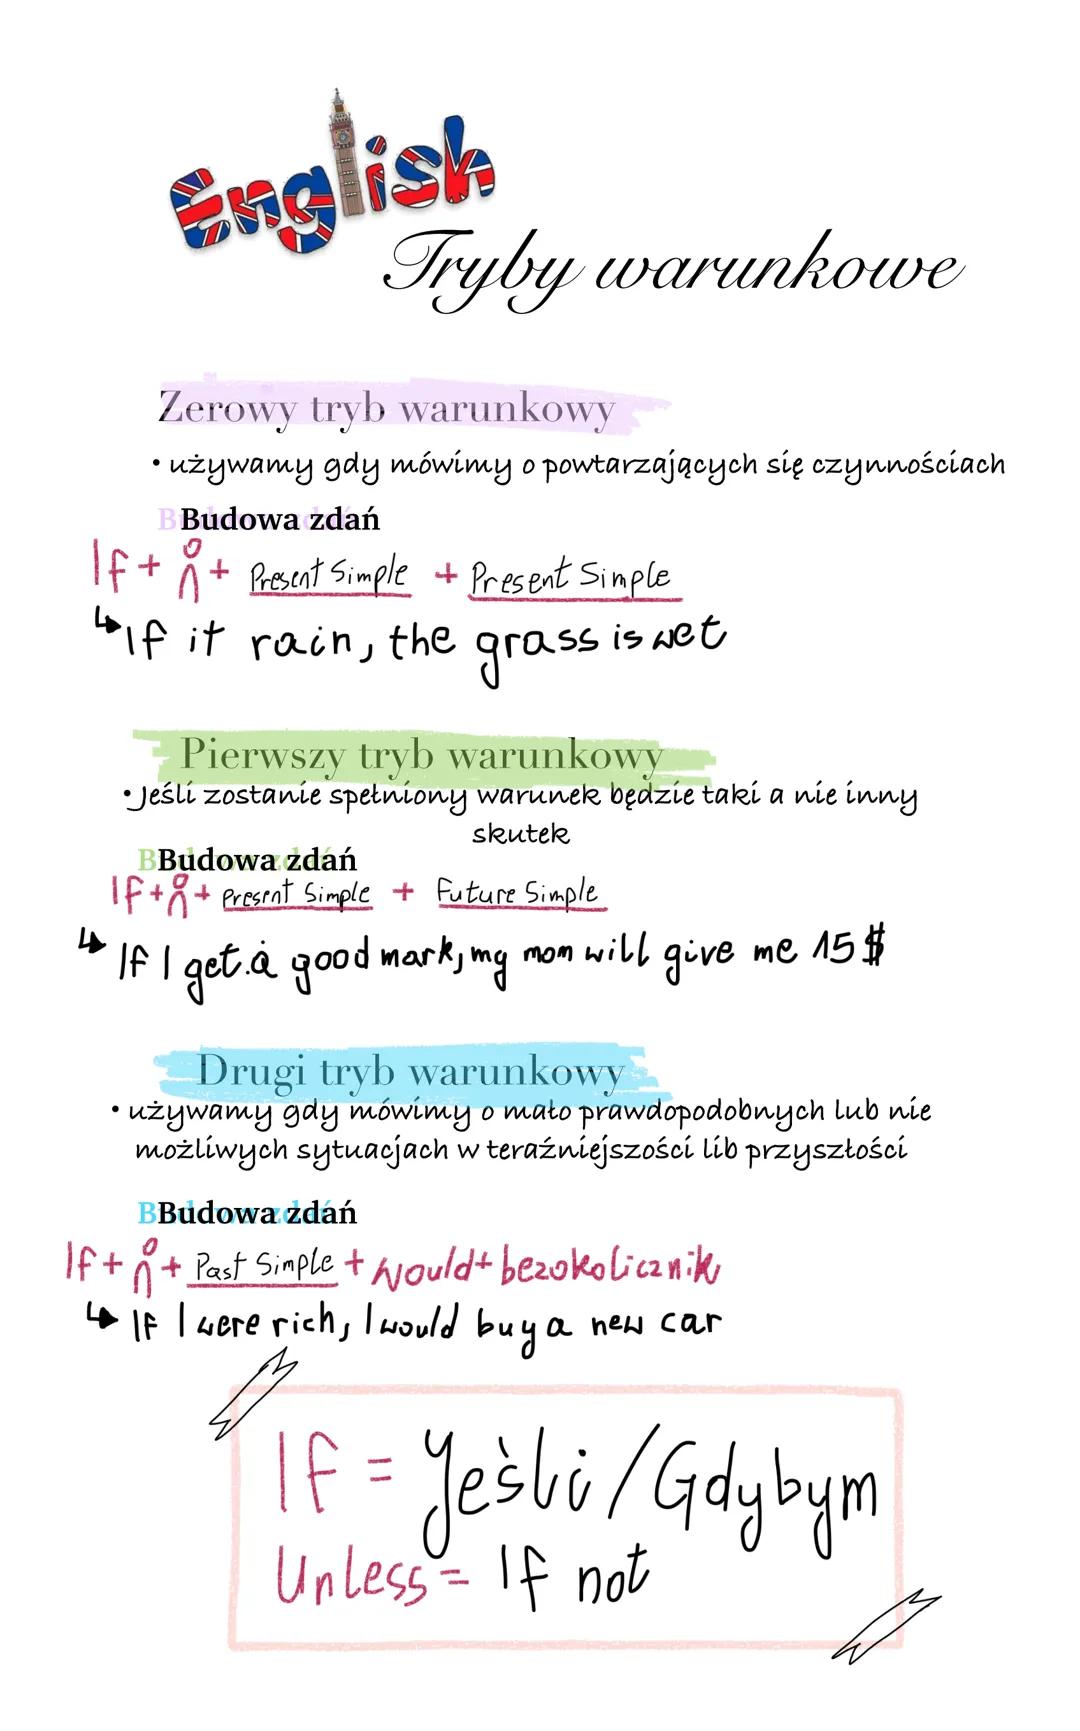 English
Tryby warunkowe
Zerowy tryb warunkowy
• używamy gdy mówimy o powtarzających się czynnościach
Budowa zdań
If + + Present Simple + Present Simple
If it rain, the grass is wet
Pierwszy tryb warunkowy
• Jeśli zostanie spełniony warunek będzie taki a nie inny
skutek
Budowa zdań
If + + Present Simple + Future Simple
If I get a good mark, my mom will give me 15 $
Drugi tryb warunkowy
• używamy gdy mówimy o mało prawdopodobnych lub nie
możliwych sytuacjach w teraźniejszości lib przyszłości
Budowa zdań
If + + Past Simple + would + bezokolicznik
If I were rich, I would buy a new car
If = Jeśli / Gdybym
Unless = If not